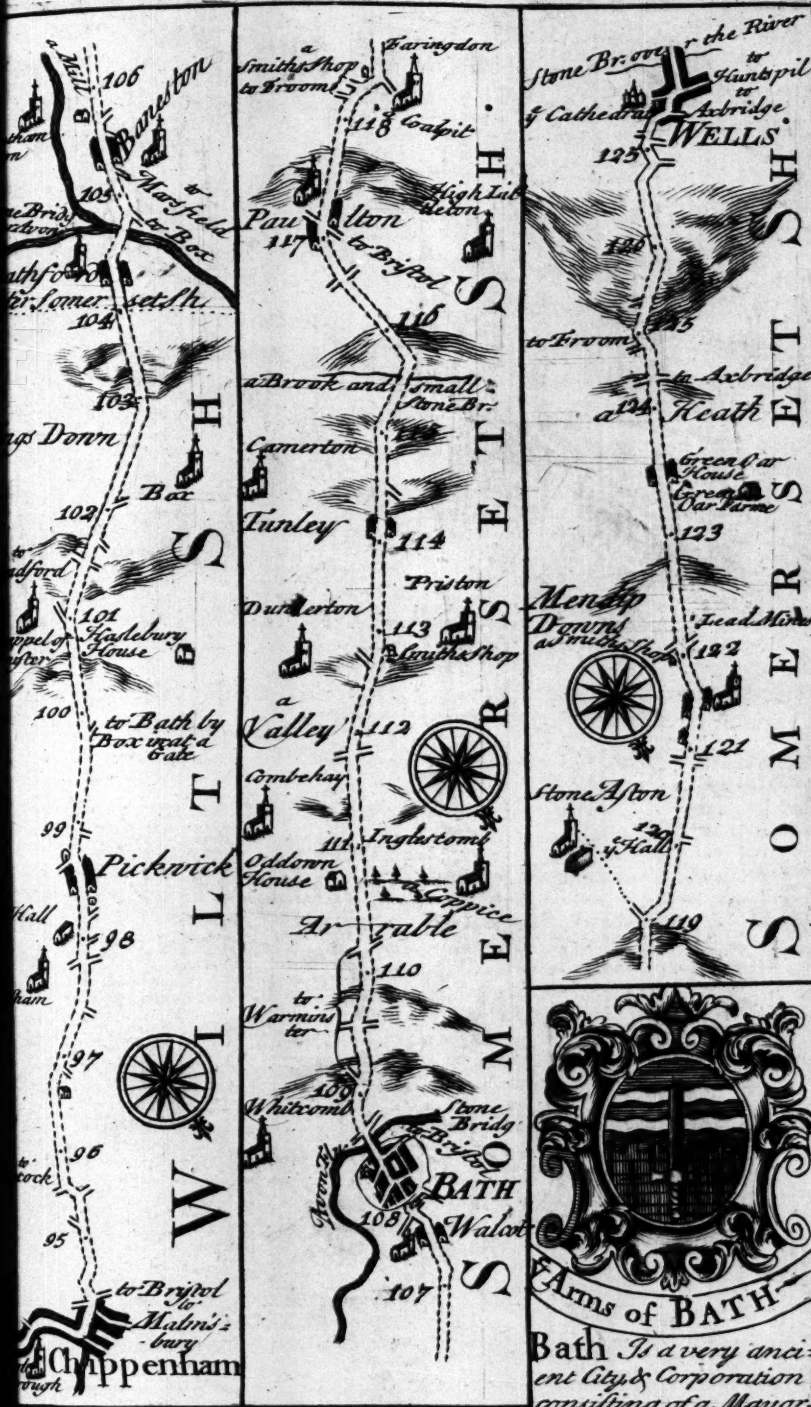 a Mill
106
Baneston
105
to
Marsfield
to Box
ter Somer set Sh
104
103
gs Down
Box
102
to
adford
101
Haslebury
House
100
to Bath by
Box incat a
Gate
99
Pickwick
Hall
98
ham
97
96
to
tock
95
to Bristol
to
Malms=
bury
Chippenham
rough
WILTSH
a
Smiths Shop
to Froom
Faringdon
118
a Coalpit
High Lit
tleton
Pau lton
117
to Bristol
116
a Brook and small
Stone Br.
115
Camerton
Tunley
114
Priston
Dunkerton
113
a Smiths Shop
a
Valley
112
Combehay
111
Inglescomb
Oddown
House
a Coppice
Ar rable
110
to
Warmins
ter
109
Whitcomb
Stone
Bridg
to Bristol
Avon R.
BATH
108
Walcot
107
SOMERSETSH.
Stone Br. over the River
to
Huntspil
to
Axbridge
ye Cathedral
WELLS.
125
126
125
to Froom
to Axbridge
124
a Heath
Green Oar
House
Green
Oar Farme
123
Mendip
Downs
Lead Mines
a Smiths Shop
122
121
Stone Aston
120
ye Hall
119
SOMERSETSH.
ye Arms of BATH
Bath Is a very anci=
ent City & Corporation
consisting of a Mayor